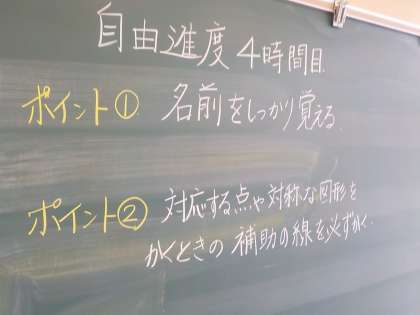 自由進度 4時間目
ポイント① 名前をしっかり覚える。
ポイント② 対応する点や対称な図形を
かくときの 補助の線を必ずかく。